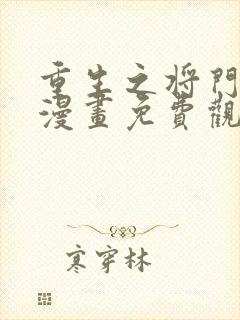 重生之将門
漫畫免費觀
寒穿林